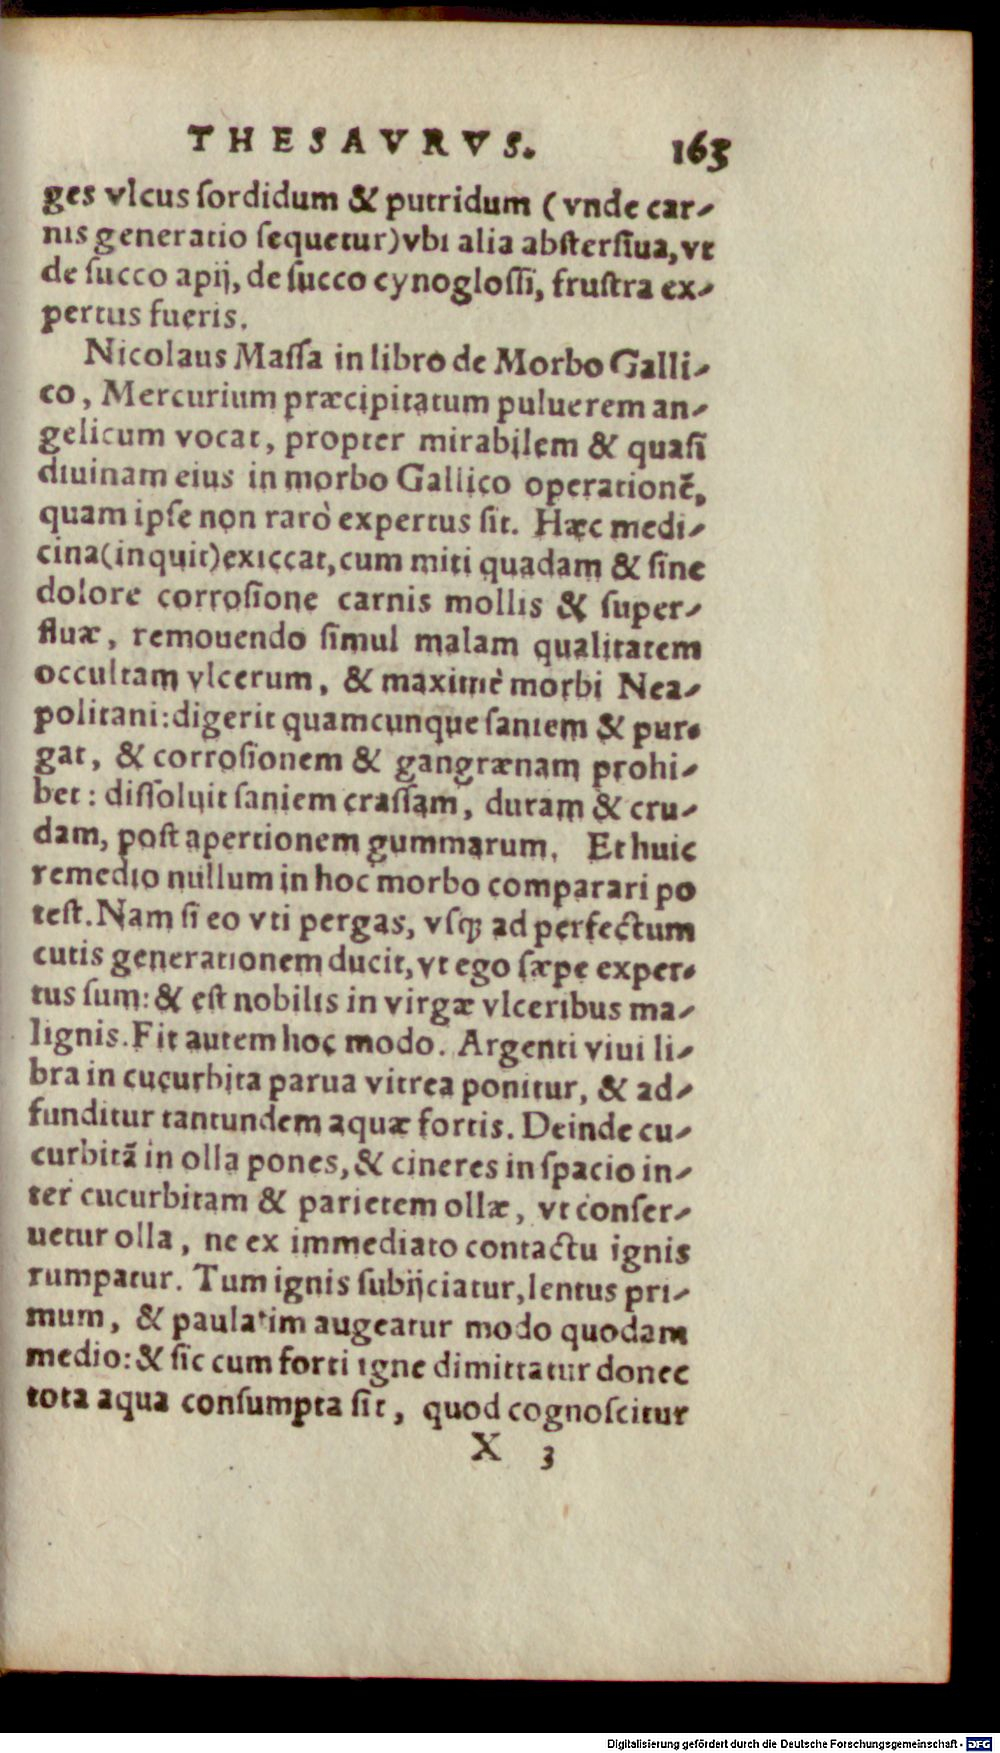 THESAVRVS. 163
ges vlcus ſordidum & putridum (vnde car-
nis generatio ſequetur) vbi alia abſterſiua, vt
de ſucco apij, de ſucco cynogloſſi, fruſtra ex-
pertus fueris.
Nicolaus Maſſa in libro de Morbo Galli-
co, Mercurium præcipitatum puluerem an-
gelicum vocat, propter mirabilem & quaſi
diuinam eius in morbo Gallico operationẽ,
quam ipſe non rarò expertus ſit. Hæc medi-
cina (inquit) exiccat, cum miti quadam & ſine
dolore corroſione carnis mollis & super-
fluæ, remouendo ſimul malam qualitatem
occultam vlcerum, & maximè morbi Nea-
politani: digerit quamcunque ſaniem & pur-
gat, & corroſionem & gangrænam prohi-
bet: diſſoluit ſaniem craſſam, duram & cru-
dam, poſt apertionem gummarum. Et huic
remedio nullum in hoc morbo comparari po
teſt. Nam ſi eo vti pergas, vſq; ad perfectum
cutis generationem ducit, vt ego ſæpe exper-
tus ſum: & eſt nobilis in virgæ vlceribus ma-
lignis. Fit autem hoc modo. Argenti viui li-
bra in cucurbita parua vitrea ponitur, & ad-
funditur tantundem aquæ fortis. Deinde cu-
curbitã in olla pones, & cineres in ſpacio in-
ter cucurbitam & parietem ollæ, vt conſer-
uetur olla, ne ex immediato contactu ignis
rumpatur. Tum ignis ſubijciatur, lentus pri-
mum, & paulatim augeatur modo quodam
medio: & ſic cum forti igne dimittatur donec
tota aqua conſumpta ſit, quod cognoſcitur
X 3
Digitalisierung gefördert durch die Deutsche Forschungsgemeinschaft - DFG